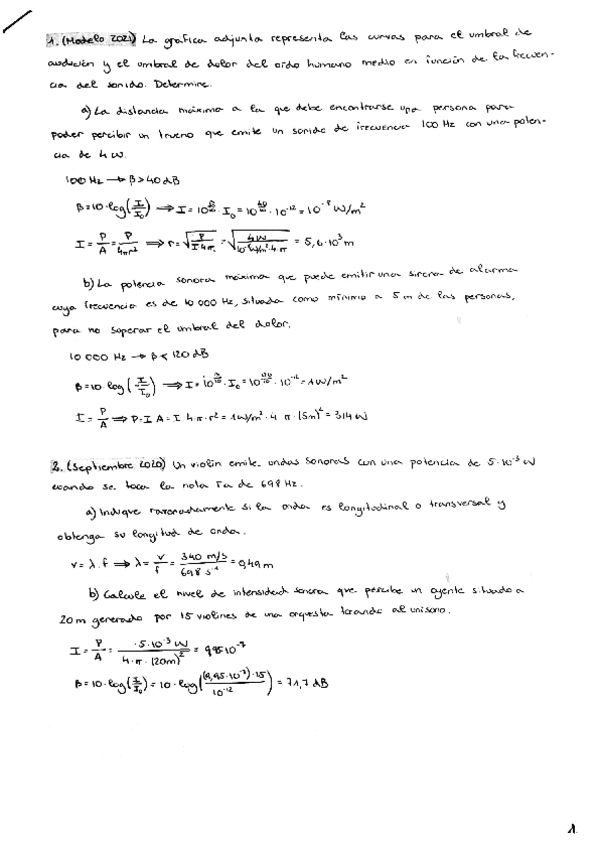 1. (Modelo 2021) La gráfica adjunta representa las curvas para el umbral de
audición y el umbral de dolor del oído humano medio en función de la frecuen-
cia del sonido. Determine.
a) La distancia máxima a la que debe encontrarse una persona para
poder percibir un trueno que emite un sonido de frecuencia 100 Hz con una poten-
cia de 4 W.
100 Hz → β > 40 dB
β = 10·log(I/I₀) ⇒ I = 10^(β/10)·I₀ = 10^(40/10)·10⁻¹² = 10⁻⁸ W/m²
I = P/A = P/4πr² ⇒ r = √(P/I4π) = √(4W/10⁻⁸W/m²·4·π) = 5,6·10³ m
b) La potencia sonora máxima que puede emitir una sirena de alarma
cuya frecuencia es de 10 000 Hz, situada como mínimo a 5 m de las personas,
para no superar el umbral del dolor.
10 000 Hz → β < 120 dB
β = 10·log(I/I₀) ⇒ I = 10^(β/10)·I₀ = 10^(120/10)·10⁻¹² = 1 W/m²
I = P/A ⇒ P = I·A = I·4π·r² = 1W/m²·4·π·(5m)² = 314 W
2. (Septiembre 2020) Un violín emite ondas sonoras con una potencia de 5·10⁻³ W
cuando se toca la nota Fa de 698 Hz.
a) Indique razonadamente si la onda es longitudinal o transversal y
obtenga su longitud de onda.
v = λ·f ⇒ λ = v/f = 340 m/s / 698 s⁻¹ = 0,49 m
b) Calcule el nivel de intensidad sonora que percibe un oyente situado a
20 m generado por 15 violines de una orquesta tocando al unísono.
I = P/A = 5·10⁻³ W / 4·π·(20m)² = 9,95·10⁻⁷
β = 10·log(I/I₀) = 10·log((9,95·10⁻⁷)·15 / 10⁻¹²) = 71,7 dB
1.